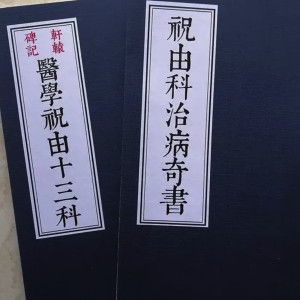 軒轅
碑記
醫學祝由十三科
祝由科治病奇書